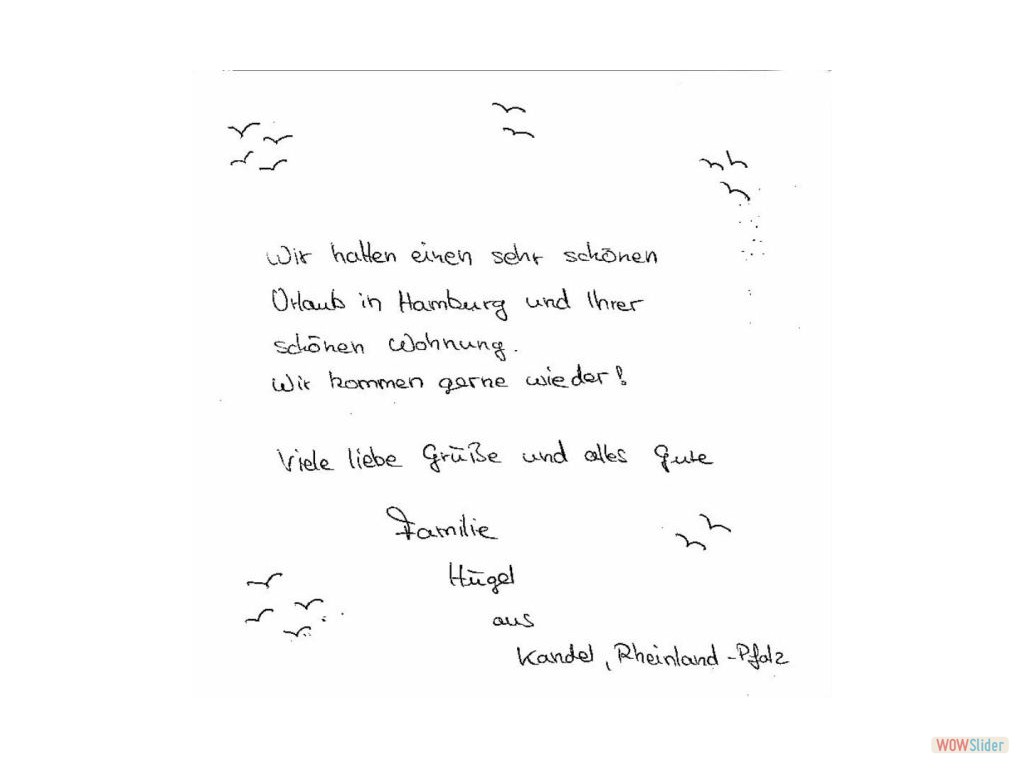 Wir hatten einen sehr schönen
Urlaub in Hamburg und Ihrer
schönen Wohnung.
Wir kommen gerne wieder!
Viele liebe Grüße und alles Gute
Familie
Hügel
aus
Kandel, Rheinland-Pfalz
WOWSlider